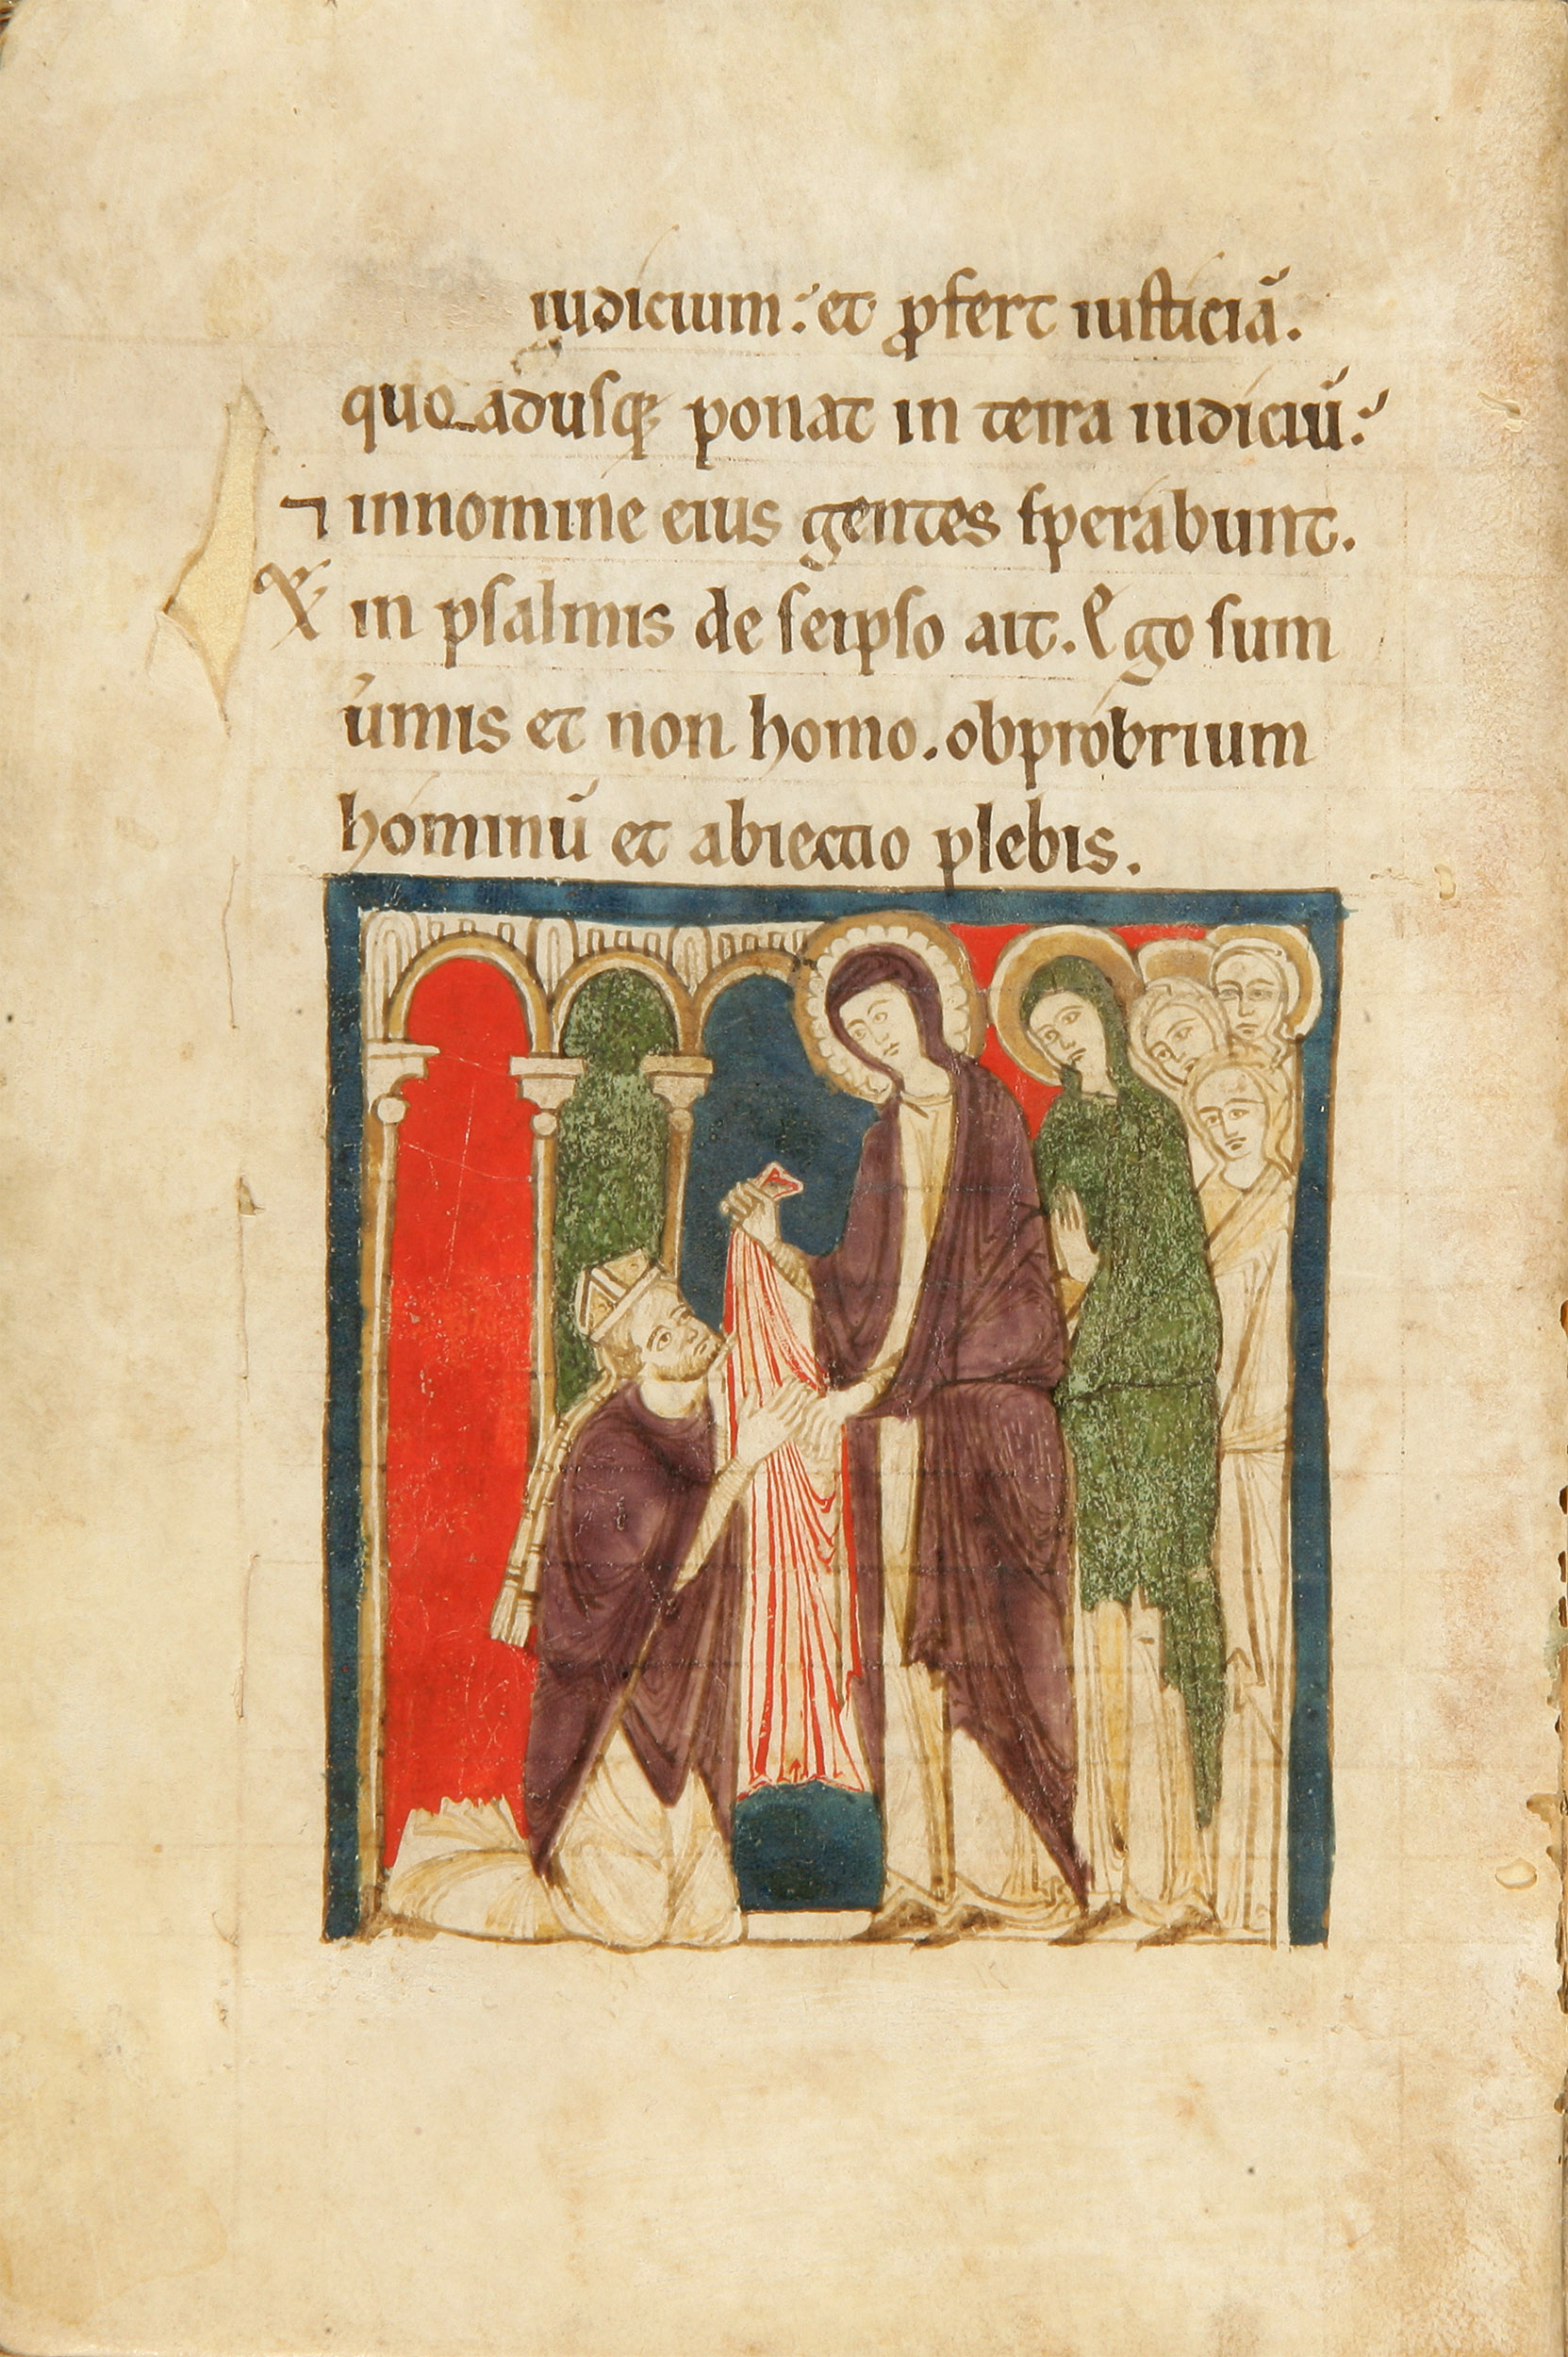 iudicium: et ꝓfert iusticiā.
quo adusqꝫ ponat in terra iudiciū:
⁊ in nomine eius gentes sperabunt.
X̅ in psalmis de seipso ait. Ego sum
u̅mis et non homo. obprobrium
hominū et abiectio plebis.